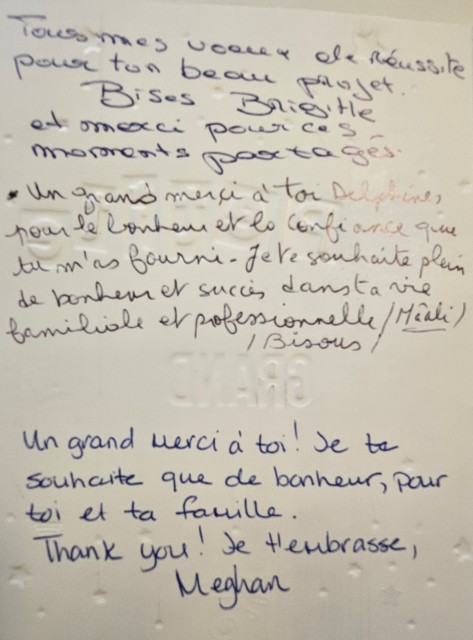 Tous mes voeux de réussite
pour ton beau projet.
Bises Brigitte
et merci pour ces
moments partagés.
• Un grand merci à toi Delphine,
pour le bonheur et la confiance que
tu m'as fourni - Je te souhaite plein
de bonheur et succès dans ta vie
familiale et professionnelle / Mâali /
/ Bisous /
GRAND
Un grand merci à toi! Je te
souhaite que de bonheur, pour
toi et ta famille.
Thank you! Je t'embrasse,
Meghan